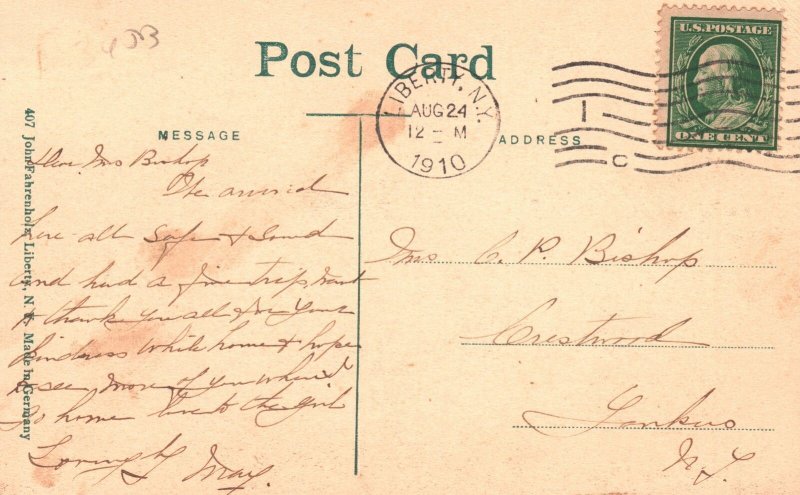 Post Card
LIBERTY, N.Y.
AUG 24
12 - M
1910
U.S. POSTAGE
ONE CENT
1
C
MESSAGE
ADDRESS
407 John Fahrenholz, Liberty, N. Y. Made in Germany
Dear Mrs Bishop
We arrived
here all safe & sound
and had a fine trip, want
to thank you all for your
kindness while home & hope
to see more of you when I
go home love to the girls
Lovingly May.
Mrs. C. P. Bishop
Crestwood
Yonkers
N.Y.